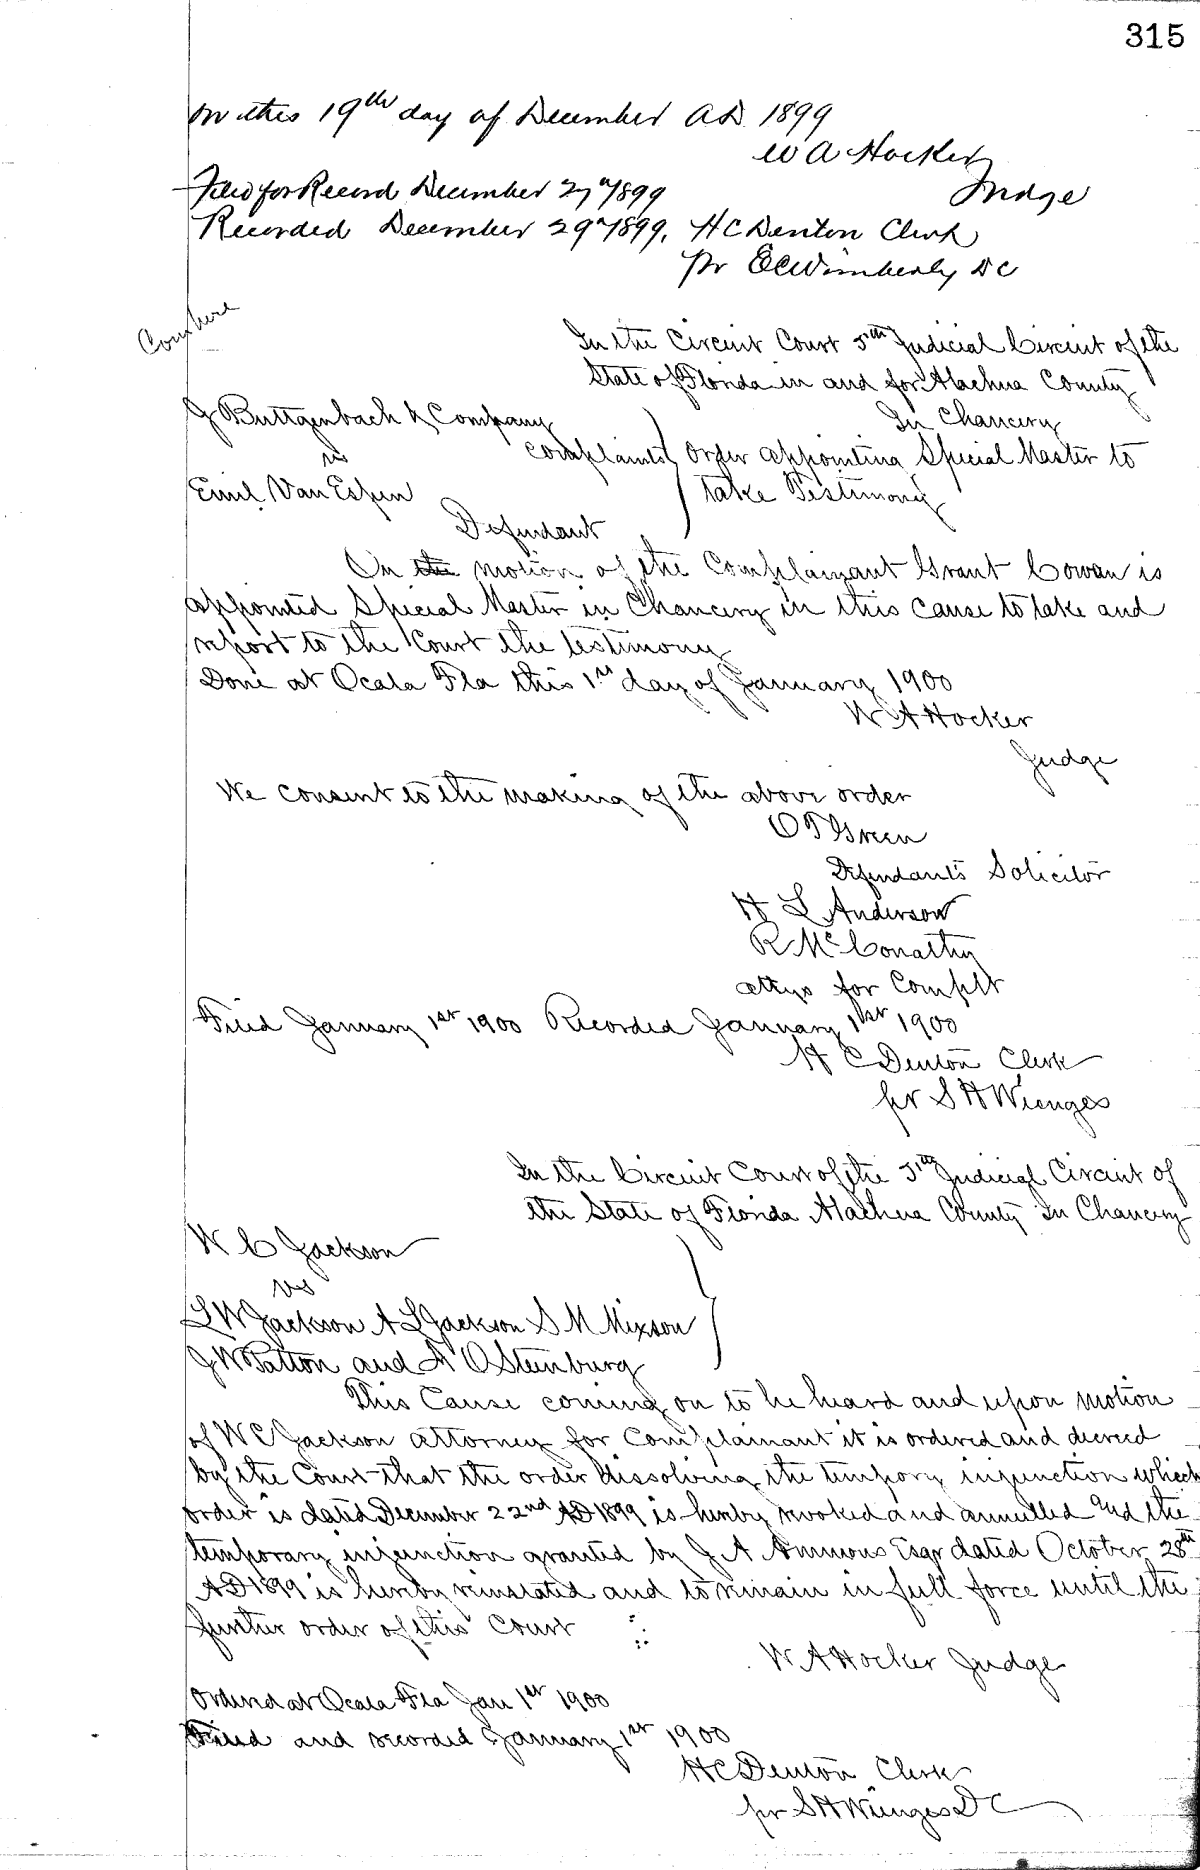 315
on this 19th day of December A.D. 1899
W A Hocker
Judge
Filed for Record December 27th 1899
Recorded December 29th 1899, H C Denton Clerk
Pr E C Wimberly D C
In the Circuit Court 5th Judicial Circuit of the
State of Florida in and for Alachua County
In Chancery
J Buttgenbach & Company
vs complaints order appointing Special Master to
Emil Van Espen take Testimony
Defendant
On the motion of the Complainant Grant Cowan is
appointed Special Master in Chancery in this cause to take and
report to the Court the testimony
Done at Ocala Fla this 1st day of January 1900
W A Hocker
Judge
We consent to the making of the above order
O T Green
Defendants Solicitor
H L Anderson
R McConathy
attys for Complt
Filed January 1st 1900 Recorded January 1st 1900
H C Denton Clerk
pr S H Wienges
In the Circuit Court of the 5th Judicial Circuit of
the State of Florida Alachua County In Chancery
W C Jackson
vs
L W Jackson A L Jackson S M Mixson
J W Patton and A O Steenburg
This Cause coming on to be heard and upon motion
of W C Jackson attorney for Complainant it is ordered and decreed
by the Court that the order dissolving the tempory injunction which
order is dated December 22nd AD 1899 is hereby revoked and annulled and the
temporary injunction granted by J A Ammons Esqr dated October 28th
AD 1899 is hereby reinstated and to remain in full force until the
further order of this Court
W A Hocker Judge
Ordered at Ocala Fla Jan 1st 1900
Filed and recorded January 1st 1900
H C Denton Clerk
pr S H Wienges D C